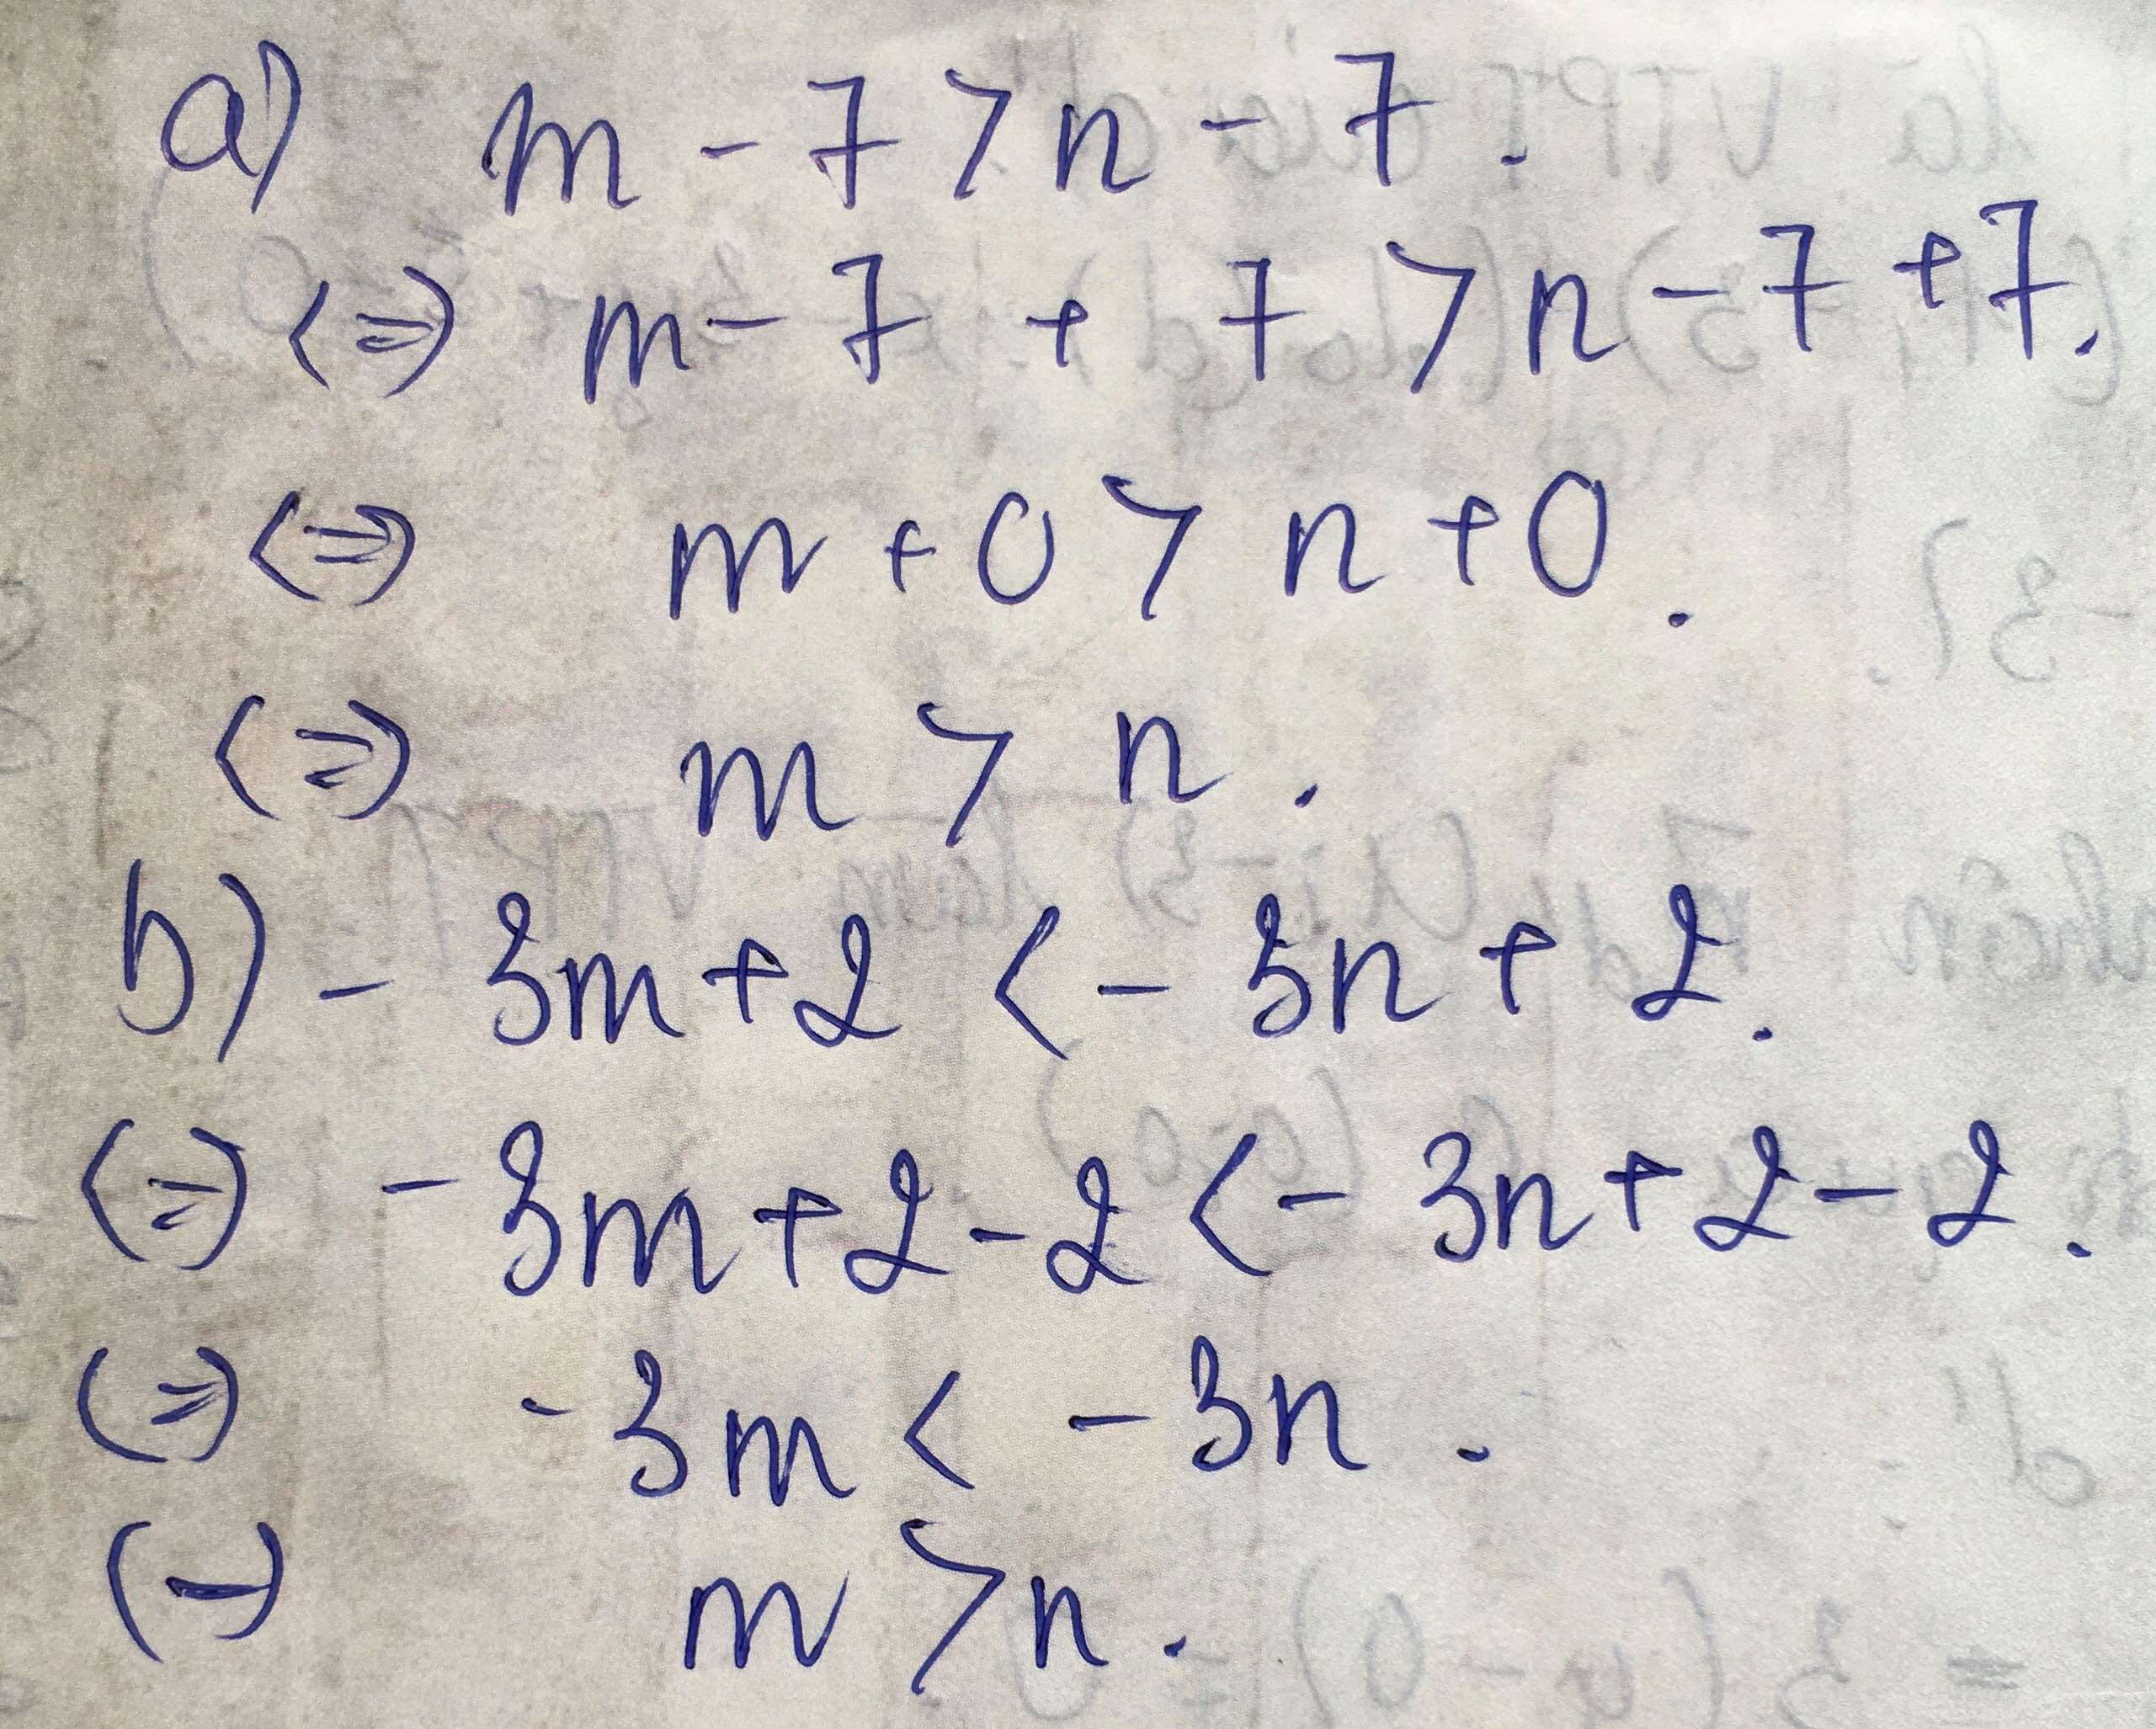 a) m - 7 > n - 7.
<=> m - 7 + 7 > n - 7 + 7.
<=> m + 0 > n + 0.
<=> m > n.
b) - 3m + 2 < - 3n + 2.
<=> - 3m + 2 - 2 < - 3n + 2 - 2.
<=> - 3m < - 3n.
<=> m > n.